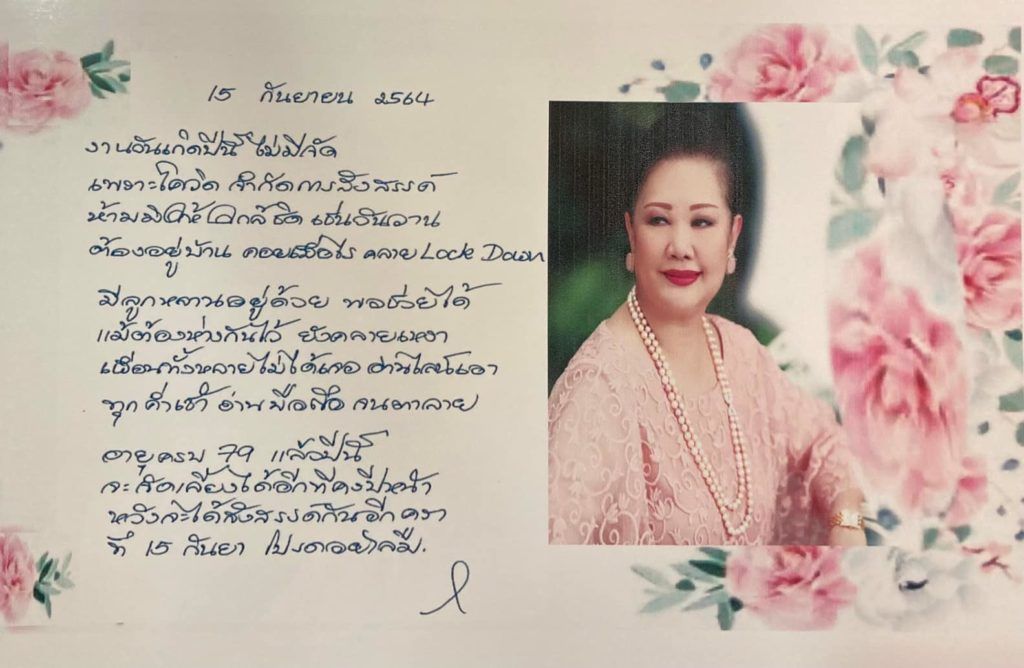 15 กันยายน 2564
งานวันเกิดปีนี้ ไม่มีจัด
เพราะโควิด จำกัดการสังสรรค์
ห้ามมิให้ใกล้ชิด เช่นวันวาน
ต้องอยู่บ้าน คอยเมื่อไร คลาย Lock Down
มีลูกหลานอยู่ด้วย พอช่วยได้
แม้ต้องห่างกันไว้ ยังคลายเหงา
เพื่อนทั้งหลายไม่ได้เจอ อ่านไลน์เอา
ทุกค่ำเช้า อ่านมือถือ จนตาลาย
อายุครบ 79 แล้วปีนี้
จะจัดเลี้ยงได้อีกทีคงปีหน้า
หวังจะได้สังสรรค์กันอีกครา
ที่ 15 กันยา โปรดอย่าลืม.